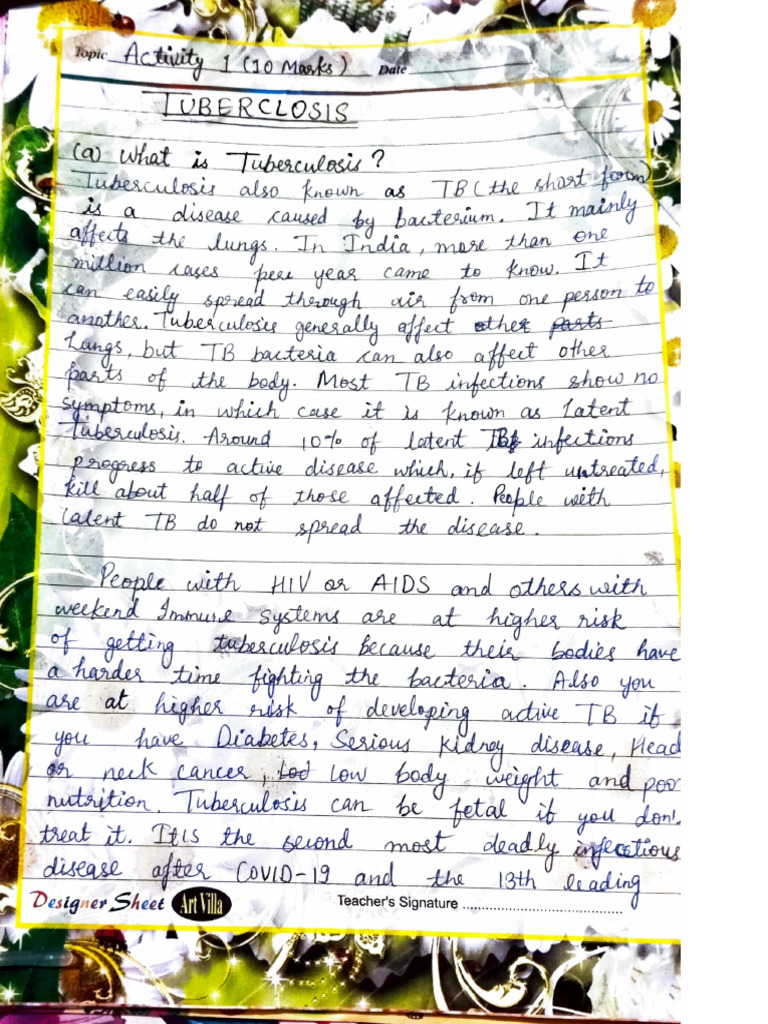 Topic Activity 1 (10 Marks) Date
TUBERCLOSIS
(a) What is Tuberculosis?
Tuberculosis also known as TB (the short form)
is a disease caused by bacterium. It mainly
affects the lungs. In India, more than one
million cases per year came to know. It
can easily spread through air from one person to
another. Tuberculosis generally affect other parts
Lungs, but TB bacteria can also affect other
parts of the body. Most TB infections show no
symptoms, in which case it is known as Latent
tuberculosis. Around 10% of latent infections
progress to active disease which, if left untreated,
kill about half of those affected. People with
latent TB do not spread the disease.
People with HIV or AIDS and others with
weekend Immune systems are at higher risk
of getting tuberculosis because their bodies have
a harder time fighting the bacteria. Also you
are at higher risk of developing active TB if
you have Diabetes, Serious kidney disease, Head
or neck cancer, low body weight and poor
nutrition. Tuberculosis can be fetal if you don't
treat it. It is the second most deadly infectious
disease after COVID-19 and the 13th leading
Designer Sheet Art Villa Teacher's Signature